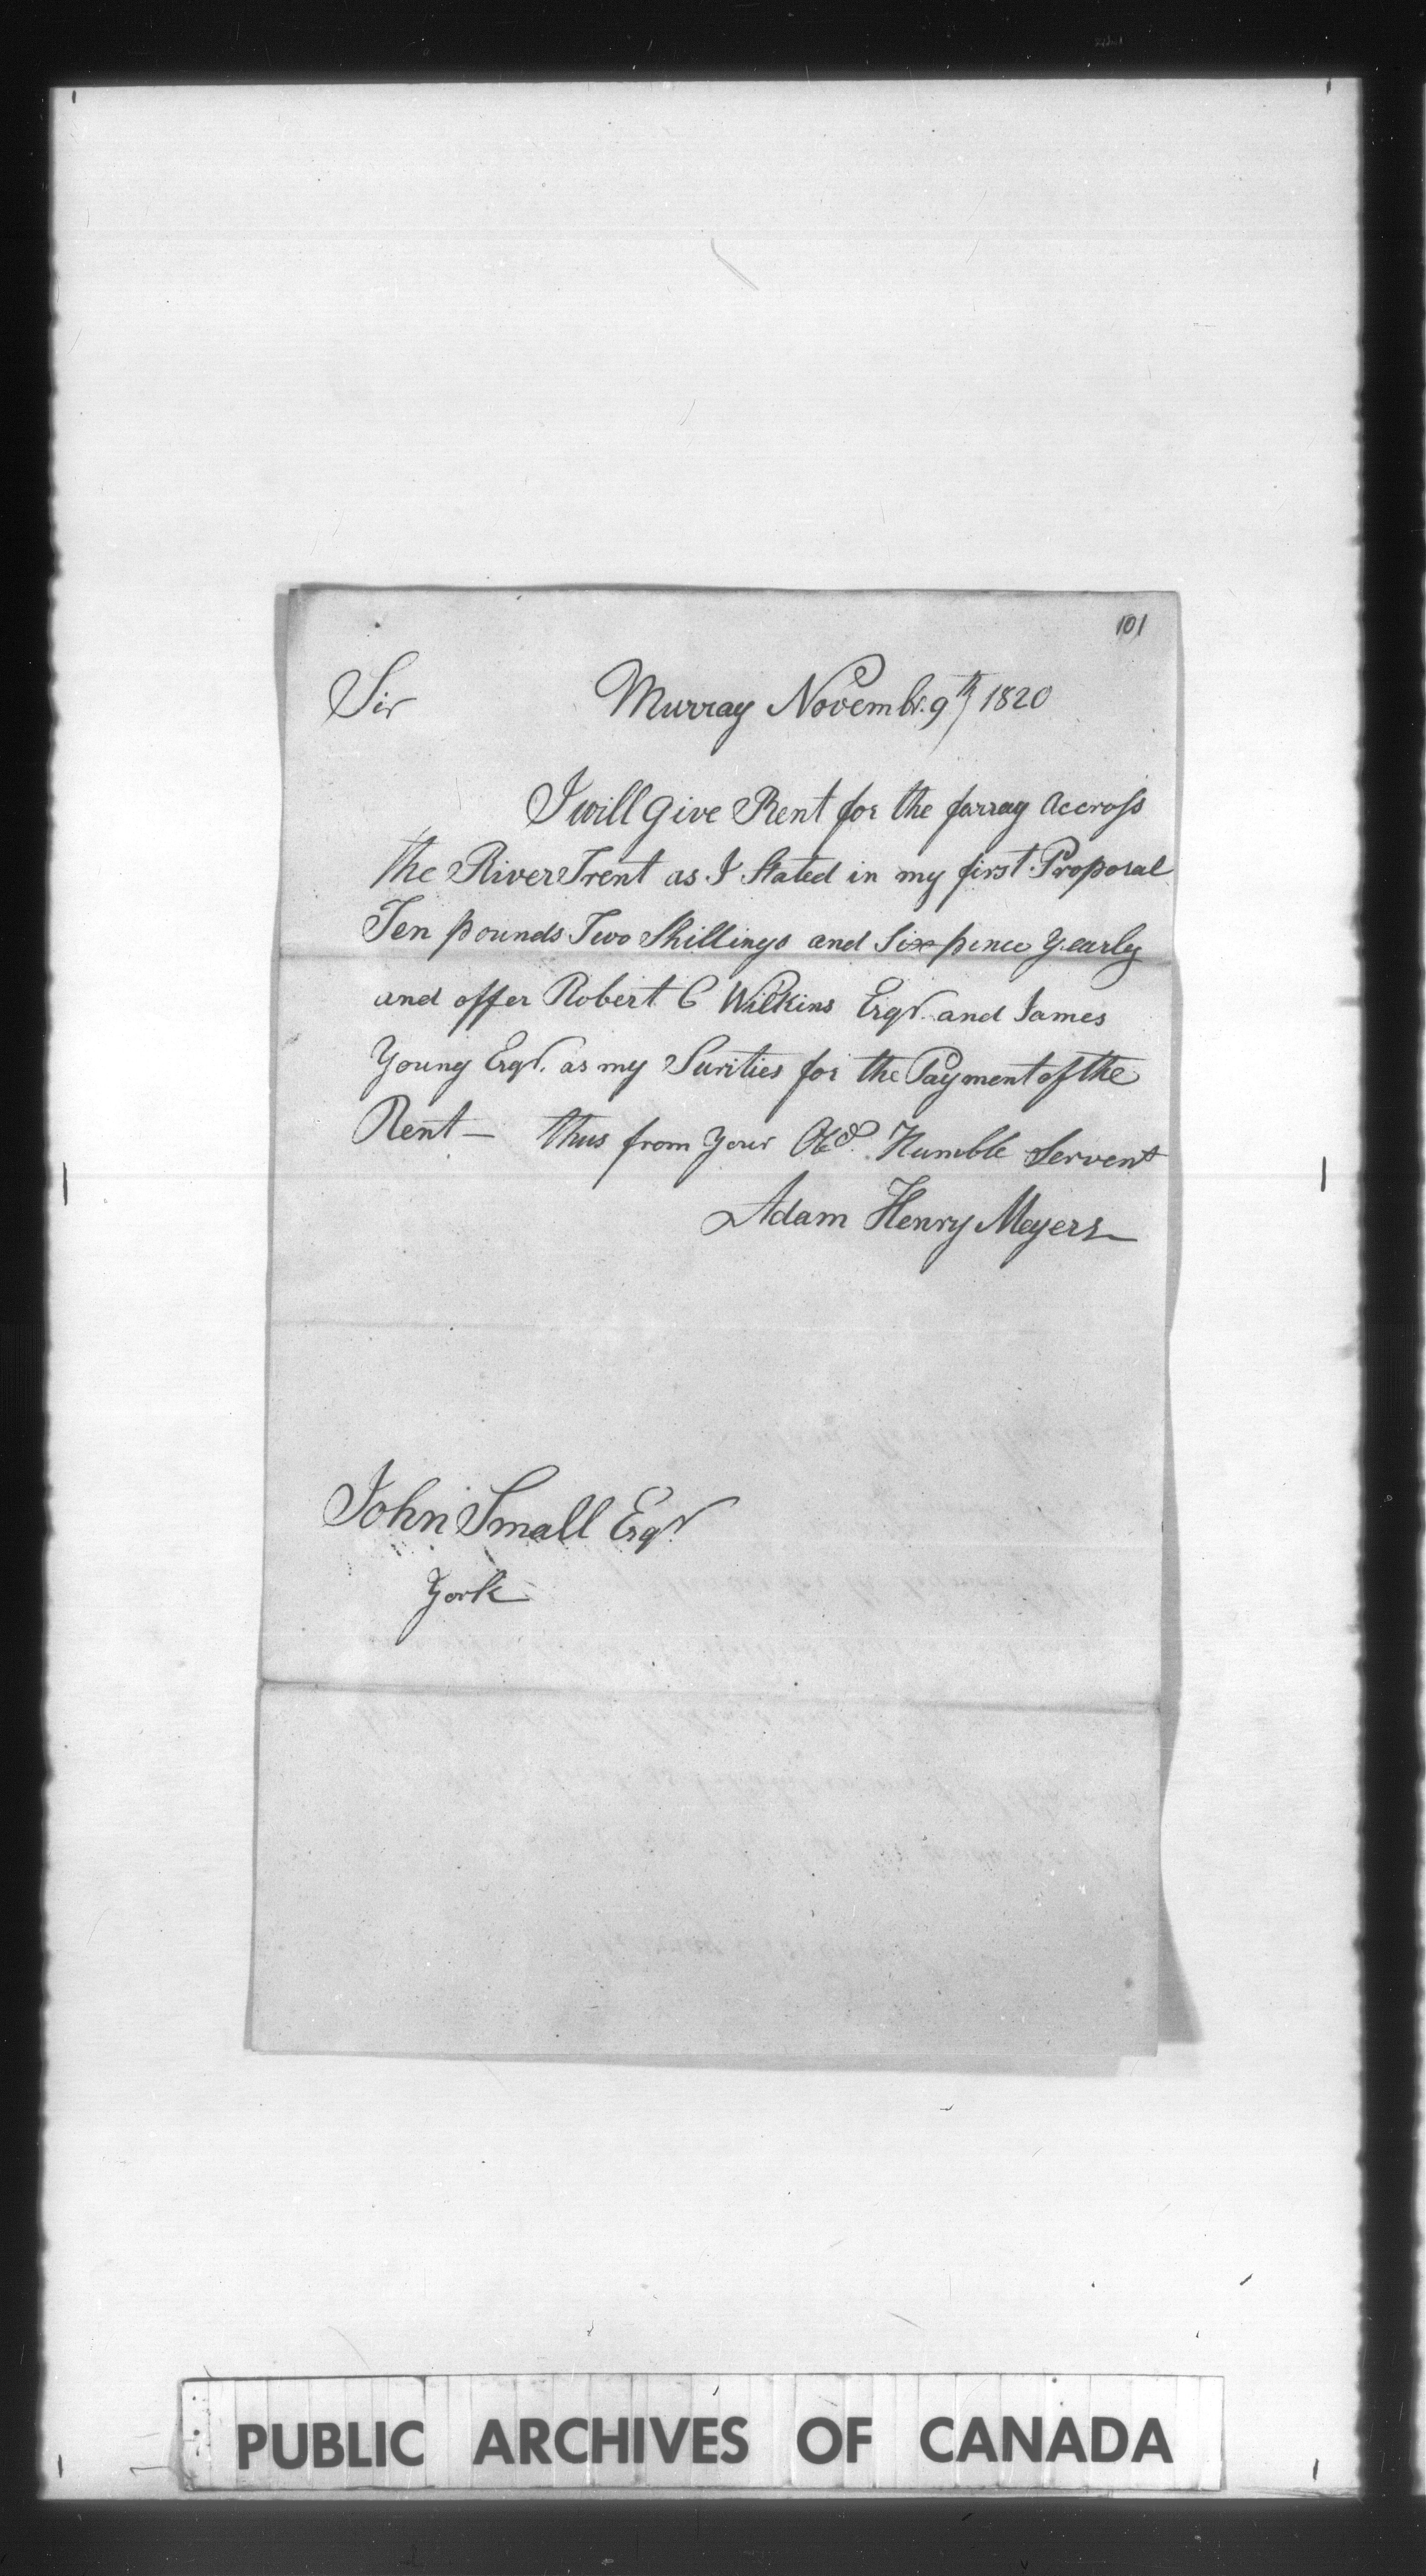 101
Sir Murray Novembr. 9th 1820
I will Give Rent for the farray accross
the River Trent as I Stated in my first Proposal
Ten pounds Two Shillings and Six pence Yearly
and offer Robert C Wilkins Esqr. and James
Young Esqr. as my Surities for the Payment of the
Rent — thus from your Obd. Humble Servent
Adam Henry Meyers
John Small Esqr.
York
PUBLIC ARCHIVES OF CANADA